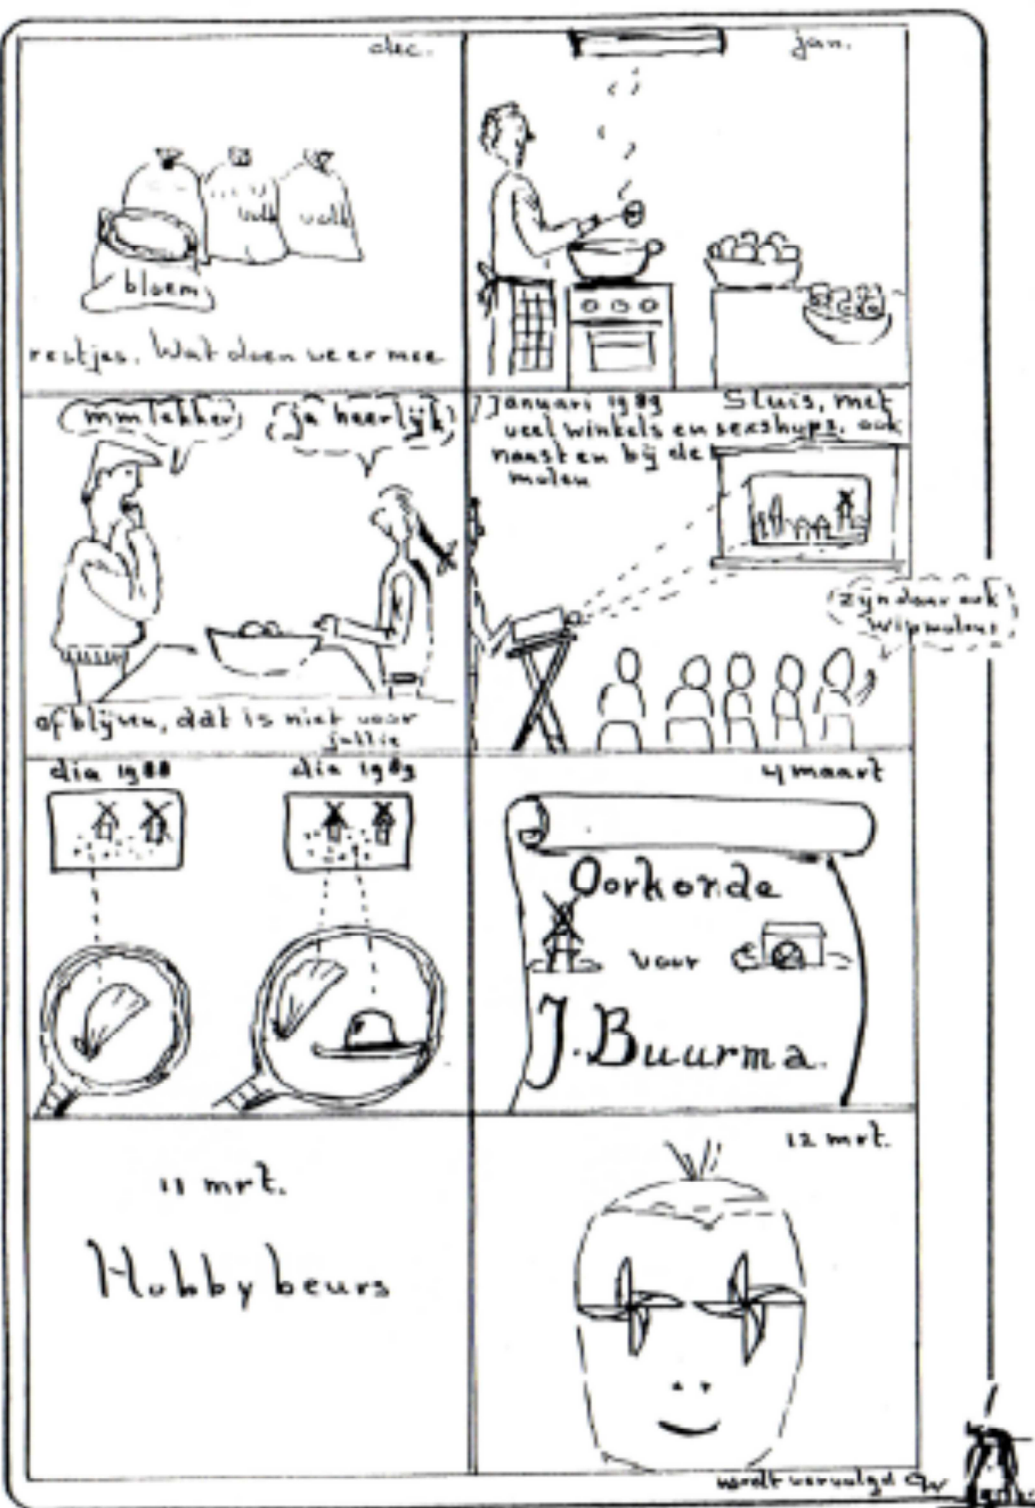 dec.
volk
volk
bloem
restjes. Wat doen we er mee
jan.
mm lekker
ja heerlijk
afblijven, dat is niet voor
jullie
7 Januari 1989 Sluis, met
veel winkels en sexshops. ook
naast en bij de
molen
zijn daar ook
wipmolens
dia 1988
dia 1989
4 maart
Oorkonde
voor
J. Buurma.
11 mrt.
Hobby beurs
12 mrt.
wordt vervolgd